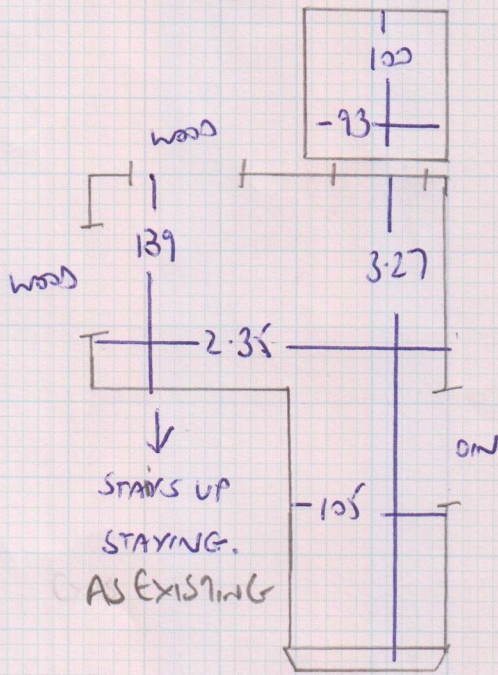 100
-93
WOOD
139
3.27
WOOD
2.35
DIN
STAIRS UP
STAYING.
AS EXISTING
-105